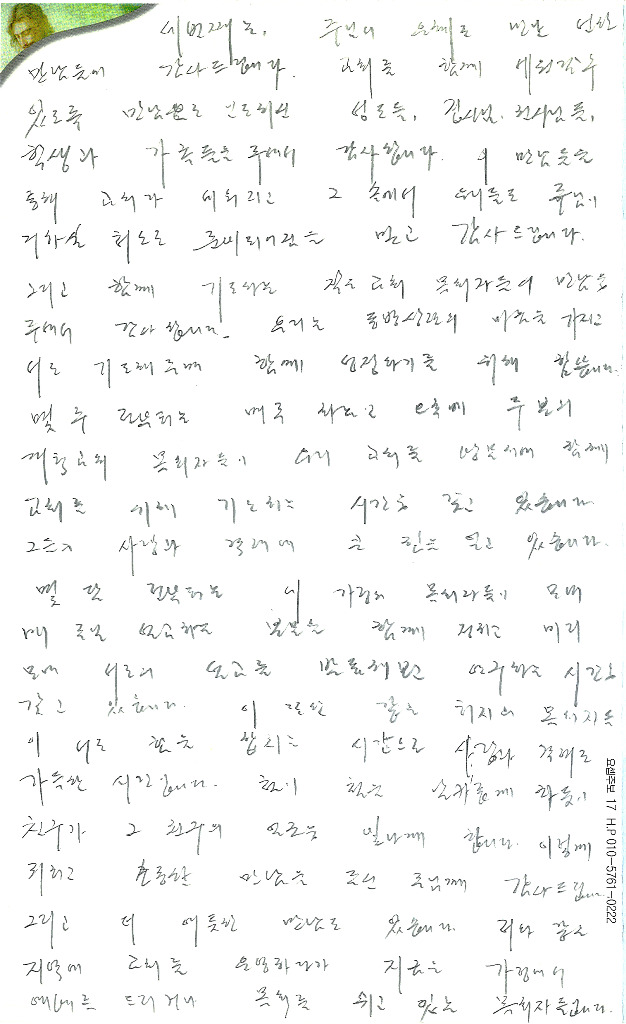 세번째는, 주님의 은혜로 만난 만남들에 감사드립니다. 교회를 함께 세워갈 수
있도록 만남으로 인도하신 성도들, 집사님, 전사님들,
학생과 가족들을 주셔서 감사합니다. 이 만남들을
통해 교회가 세워지고 그 속에서 우리들로 주님이
거하실 처소로 준비되어감을 믿고 감사드립니다.
그리고 함께 기도하는 젊은 교회 목회자들의 만남을
주셔서 감사합니다. 우리는 동병상련의 마음을 가지고
서로 기도해주며 함께 성장하기를 위해 힘씁니다.
몇 주 전부터는 매주 하고 오후에 두 분의
개척교회 목회자들이 우리 교회를 방문시에 함께
교회를 위해 기도하는 시간을 갖고 있습니다.
그는 사랑과 격려에 큰 힘을 얻고 있습니다.
몇 달 전부터는 네 가정의 목회자들이 모여
매 주일 설교하는 본문을 함께 정하고 미리
모여 서로의 설교를 발표해보고 연구하는 시간을
갖고 있습니다. 이 또한 같은 처지의 목회자들
이 서로 힘을 합치는 시간으로 사랑과 격려로
가득한 시간입니다. 철이 철을 날카롭게 하듯이
친구가 그 친구의 얼굴을 빛나게 합니다. 이렇게
귀하고 소중한 만남을 주신 주님께 감사드립니다.
그리고 더 애틋한 만남도 있습니다. 저와 같은
지역에 교회를 운영하다가 지금은 가정에서
예배를 드리거나 목회를 쉬고 있는 목회자들입니다.
요셉주보 17 H.P 010-5761-0222